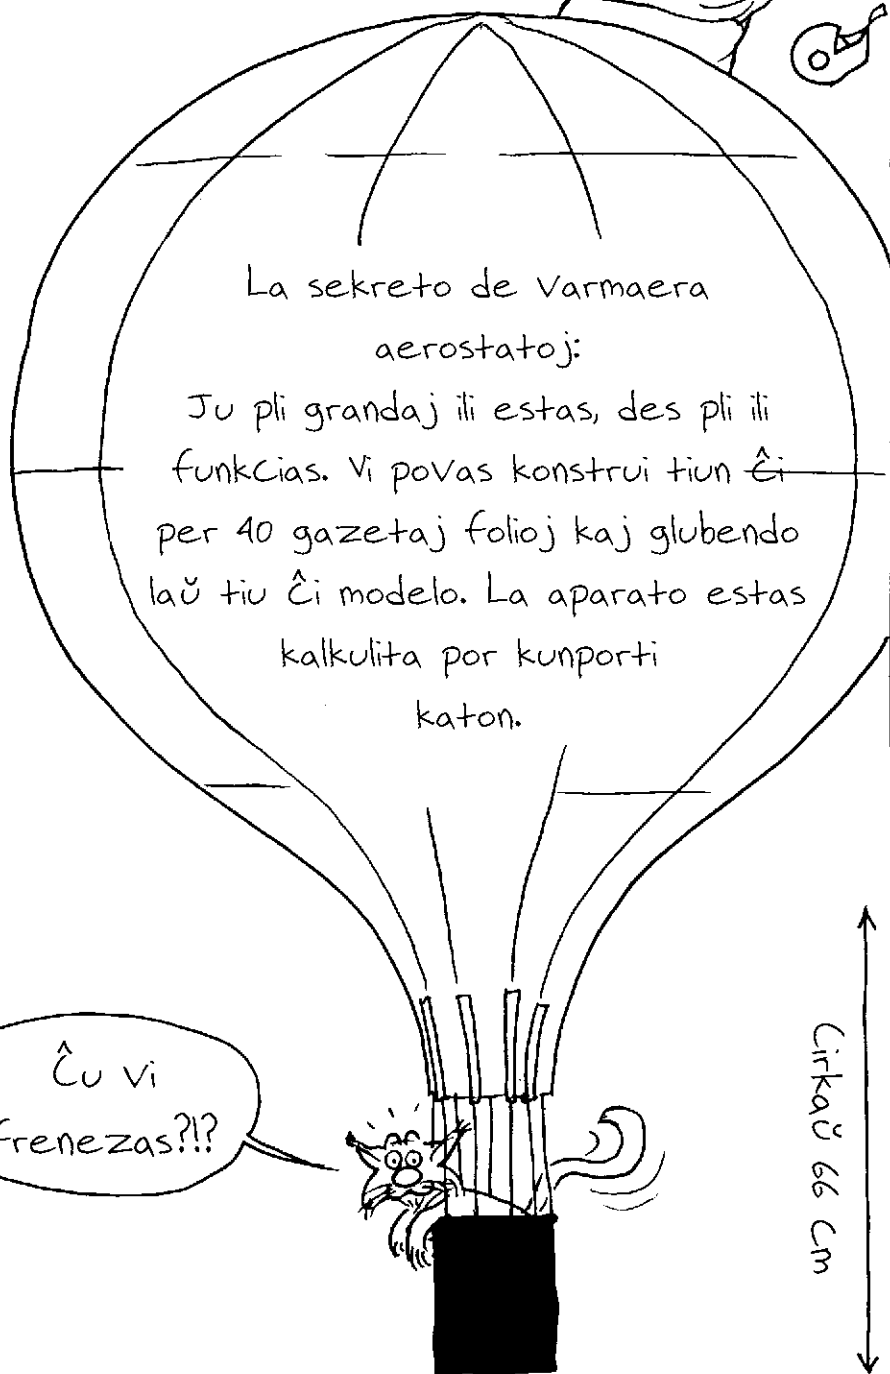 La sekreto de varmaera
aerostatoj:
Ju pli grandaj ili estas, des pli ili
funkcias. Vi povas konstrui tiun ĉi
per 40 gazetaj folioj kaj glubendo
laŭ tiu ĉi modelo. La aparato estas
kalkulita por kunporti
katon.
Ĉu vi
frenezas?!?
Cirkaŭ 66 cm